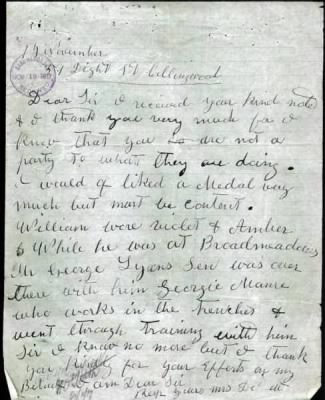 19 November
Light St Collingwood
Dear Sir I received your kind note
& I thank you very much for I
know that you are not a
party to what they are doing.
I would of liked a Medal very
much but must be content.
William wore violet & Amber
& While he was at Broadmeadows
Mr George Lyons Sen was over
there with him Georgie
who works in the trenches &
went through Training with him
Sir I know no more but I thank
you for your Efforts on my
Behalf I am Dear Sir
yours Mrs